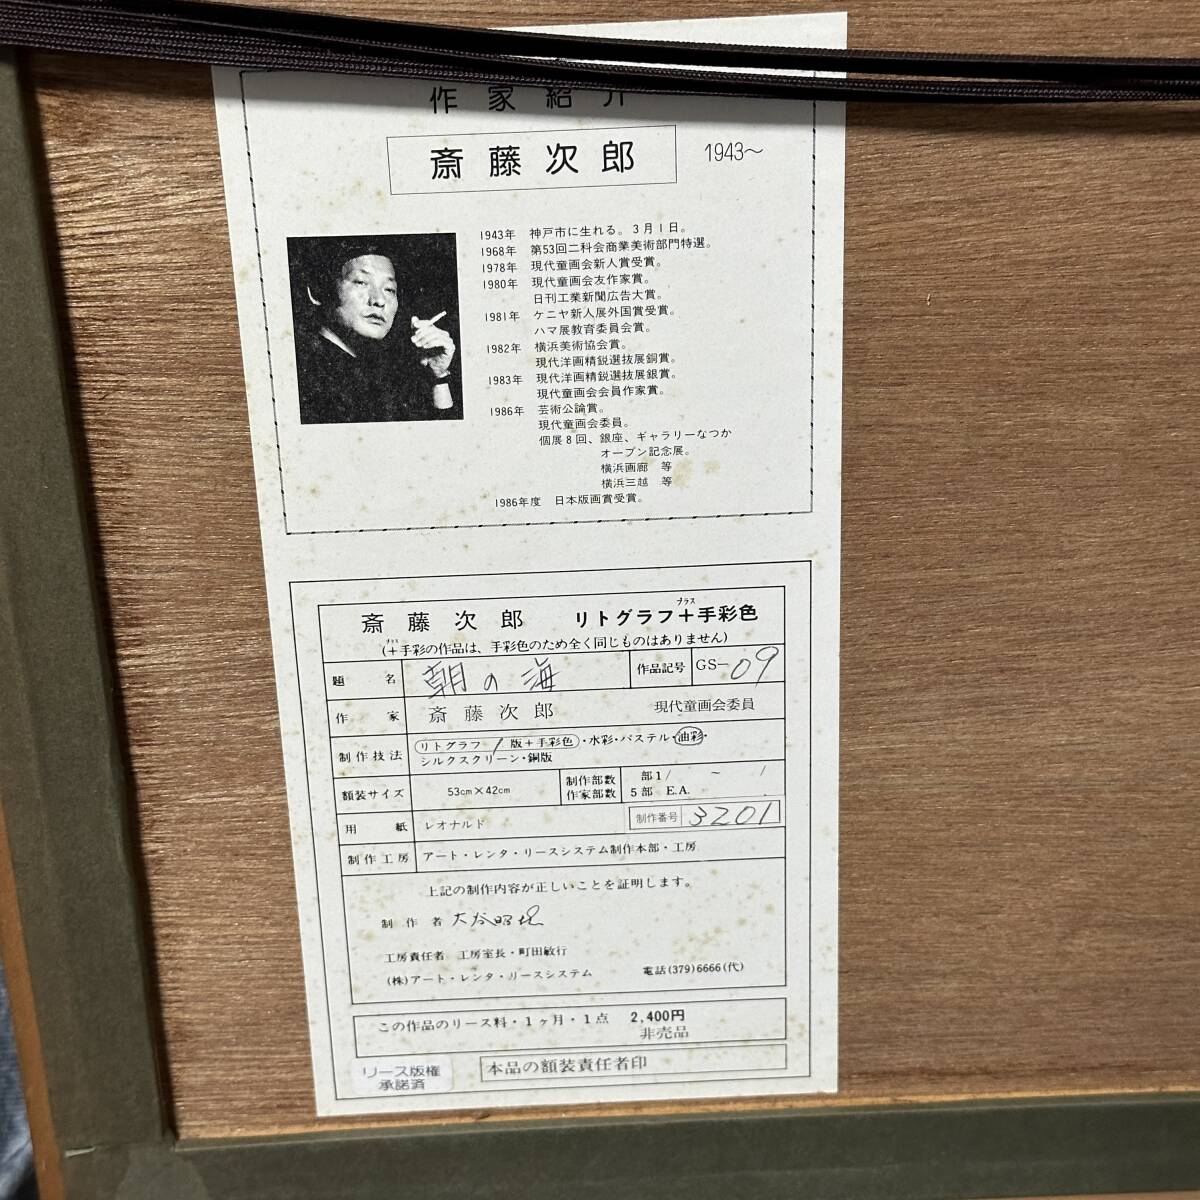 作家紹介
斎藤次郎 1943～
1943年 神戸市に生れる。3月1日。
1968年 第53回二科会商業美術部門特選。
1978年 現代童画会新人賞受賞。
1980年 現代童画会友作家賞。
日刊工業新聞広告大賞。
1981年 ケニヤ新人展外国賞受賞。
ハマ展教育委員会賞。
1982年 横浜美術協会賞。
現代洋画精鋭選抜展銅賞。
1983年 現代洋画精鋭選抜展銀賞。
現代童画会会員作家賞。
1986年 芸術公論賞。
現代童画会委員。
個展8回、銀座、ギャラリーなつか
オープン記念展。
横浜画廊 等
横浜三越 等
1986年度 日本版画賞受賞。
斎藤次郎 リトグラフ+手彩色
プラス
(+手彩の作品は、手彩色のため全く同じものはありません)
プラス
題名 朝の海 作品記号 GS-09
作家 斎藤次郎 現代童画会委員
制作技法 リトグラフ / 版+手彩色・水彩・パステル・油彩・
シルクスクリーン・銅版
額装サイズ 53cm×42cm 制作部数 部1/ ～ /
作家部数 5部 E.A.
用紙 レオナルド 制作番号 3201
制作工房 アート・レンタ・リースシステム制作本部・工房
上記の制作内容が正しいことを証明します。
制作者
工房責任者 工房室長・町田敏行
(株)アート・レンタ・リースシステム 電話(379)6666(代)
この作品のリース料・1ヶ月・1点 2,400円
非売品
リース版権
承諾済
本品の額装責任者印